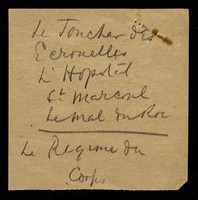 Le Toucher des
Ecrouelles
L'Hopital
St Marcoul
Le Mal du Roi
Le Regime du
Corps